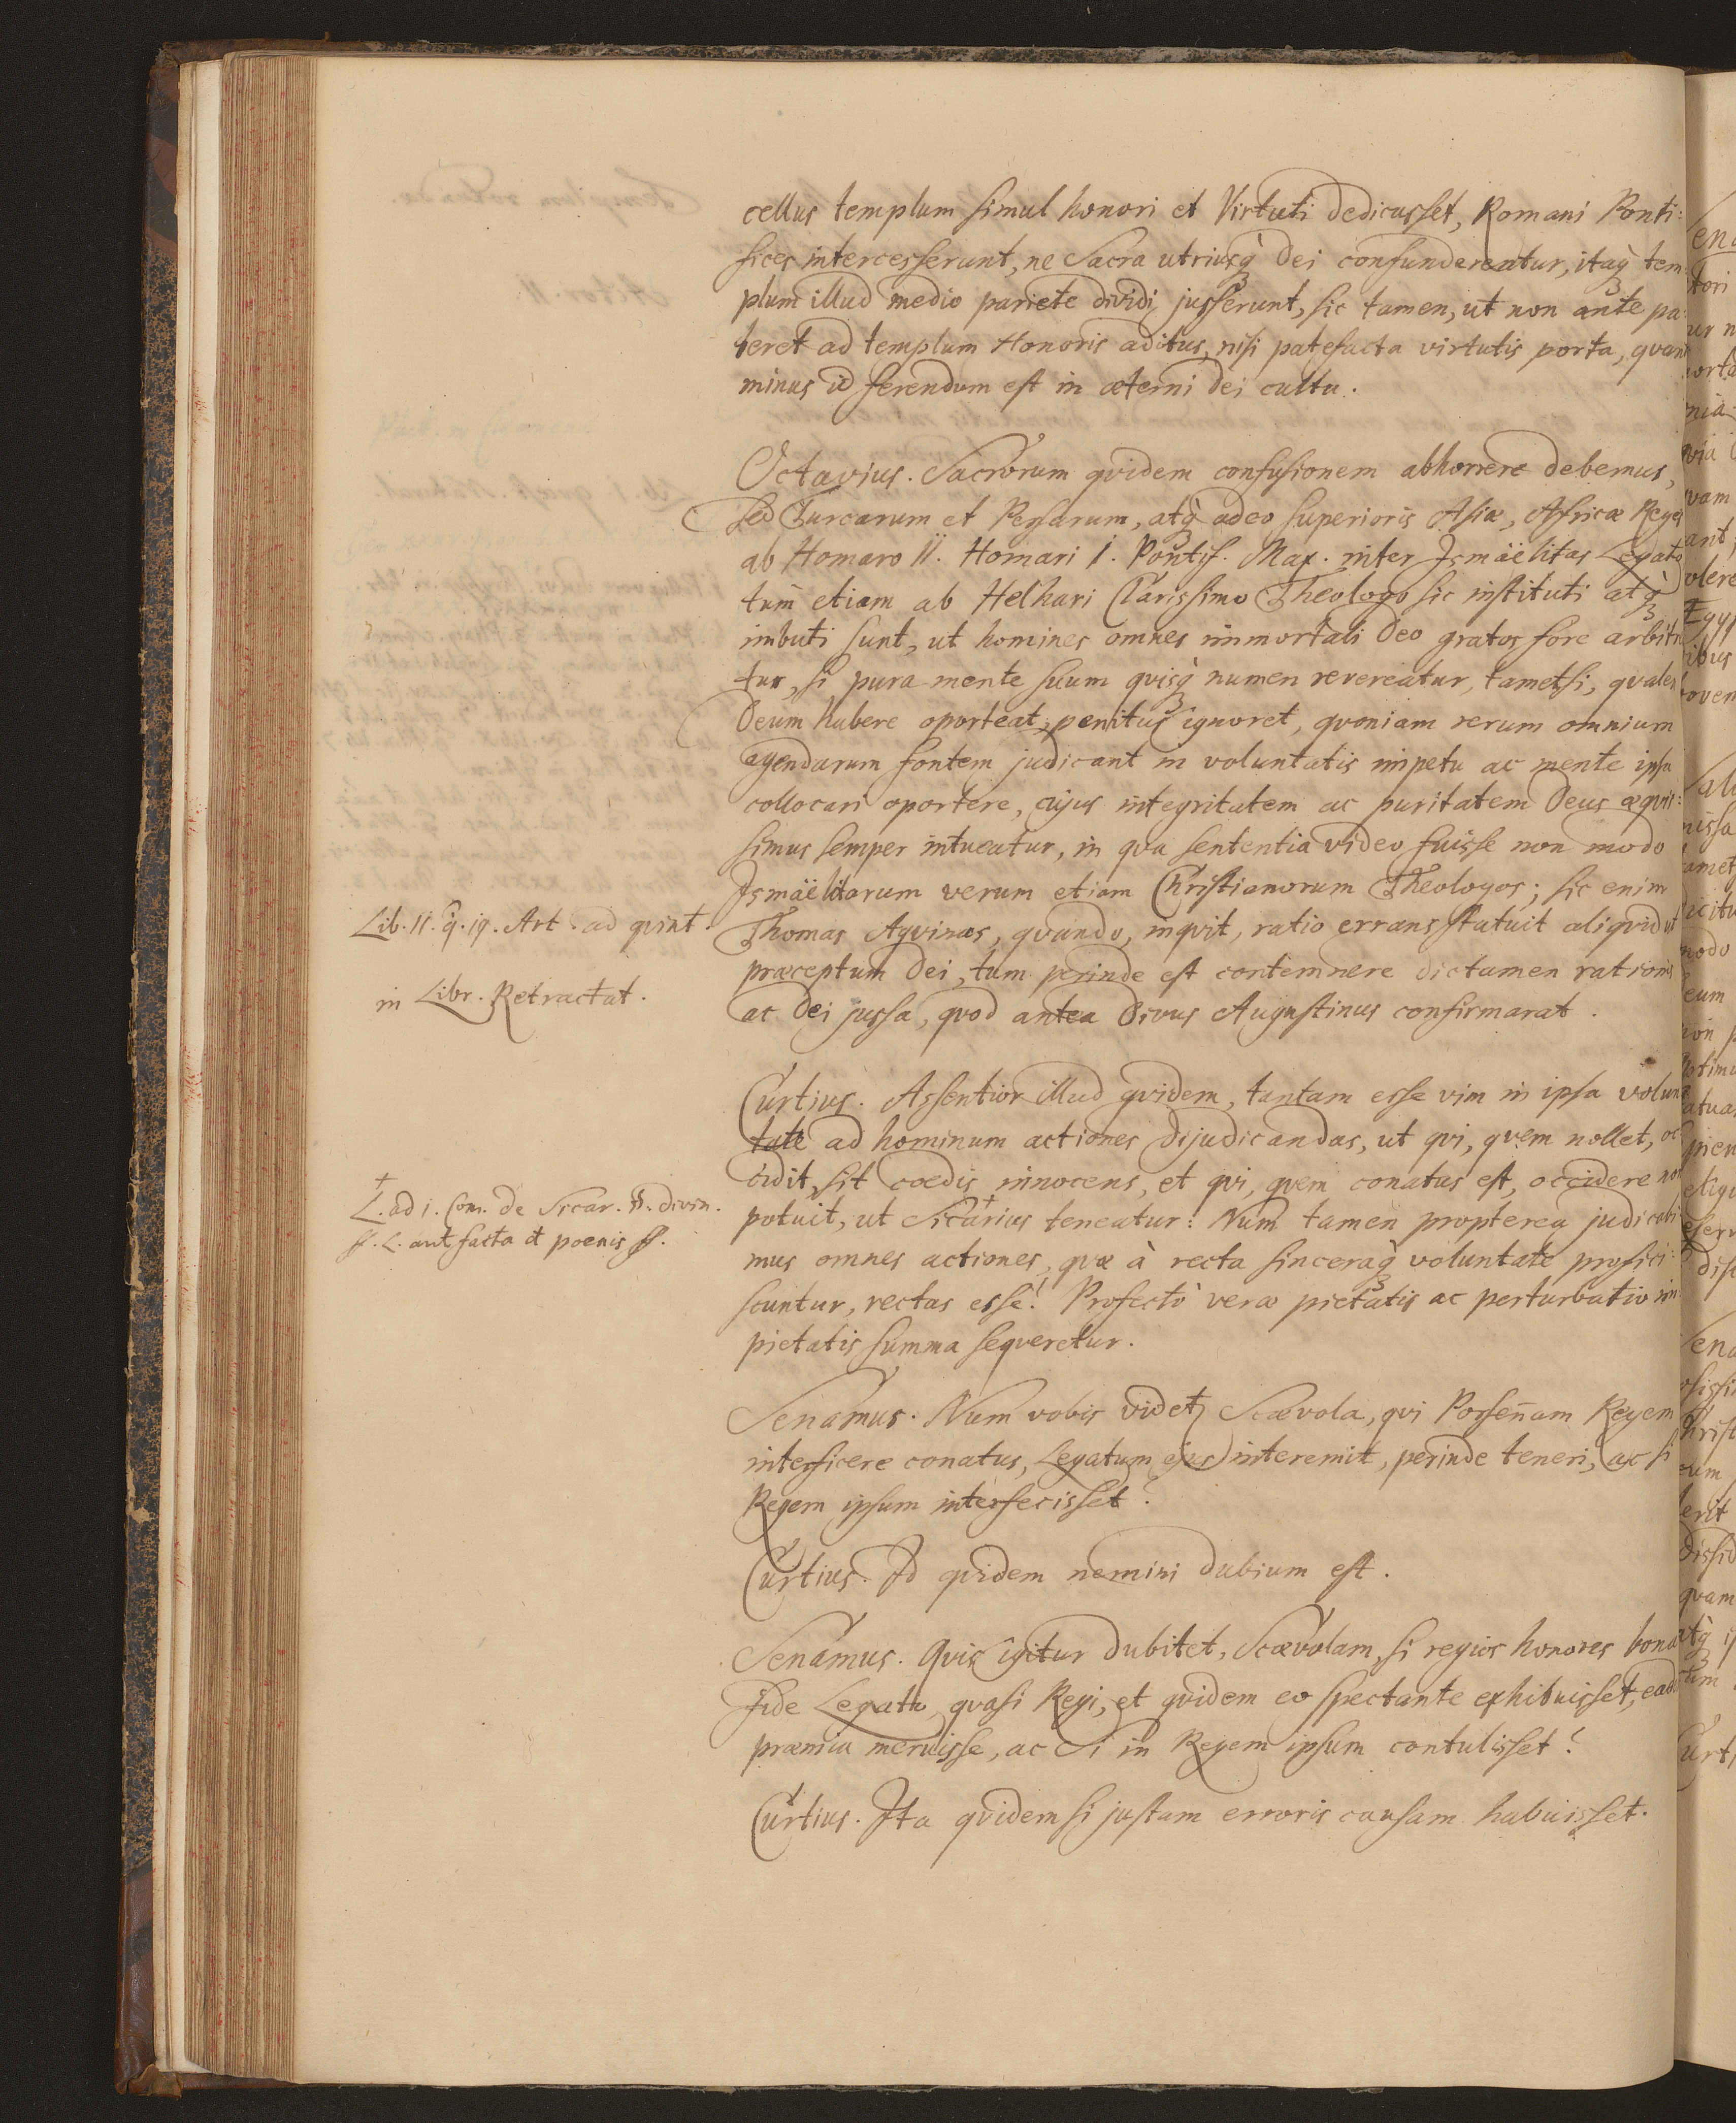 cellus templum simul honori et Virtuti dedicasset, Romani Ponti:
fices intercesserunt, ne Sacra utriusq̀ Dei confunderentur, itaq̀ tem
plum illud medio pariete dividi jusserunt, sic tamen, ut non ante pa
teret ad templum Honoris aditus, nisi patefacta virtutis porta, qvan
minus id ferendum est in æterni Dei cultu.
Octavius. Sacrorum qvidem confusionem abhorrere debemus,
sed Turcarum et Persarum, atq̀ adeo superioris Asiæ, Africæ Reges
ab Homaro II. Homari I. Pontif. Max. inter Ismäelitas Legato
tum etiam ab Helhari Clarissimo Theologo sic instituti atq̀
imbuti sunt, ut homines omnes immortali Deo gratos fore arbitr
tur, si pura mente suum qvisq̀ numen revereatur, tametsi, qvalem
Deum habere oporteat, penitus ignoret, qvoniam rerum omnium
agendarum fontem judicant in voluntatis impetu ac mente ipsa
collocari oportere, cujus integritatem ac puritatem Deus æqvis:
simus semper intueatur, in qva sententia video fuisse non modo
Ismäelitarum verum etiam Christianorum Theologos; sic enim
Lib. II. q. 19. Art. ad qvint.
Thomas Aqvinas, qvando, inqvit, ratio errans statuit aliqvid ut
præceptum Dei, tum perinde est contemnere dictamen rationis
in Libr. Retractat.
ac Dei jussa, qvod antea Divus Augustinus confirmarat.
Curtius. Assentior illud qvidem, tantam esse vim in ipsa volun
tate ad hominum actiones dijudicandas, ut qvi, qvem nollet, oc
cidit, sit coedis innocens, et qvi, qvem conatus est, occidere non
† L. ad 1. Com. de Sicar. §. divin.
potuit, ut Sicarius† teneatur: Num tamen propterea judicabi
ff. L. aut facta et poenis ff.
mus omnes actiones, qvæ à recta sinceraq̀ voluntate profici:
scuntur, rectas esse? Profectò veræ pietatis ac perturbatio im
pietatis summa seqveretur.
Senamus. Num vobis videtʒ Scævola, qvi Porsen̄am Regem
interficere conatus, Legatum ejus interemit, perinde teneri, ac si
Regem ipsum interfecisset?
Curtius. Id qvidem nemini dubium est.
Senamus. Qvis igitur dubitet, Scævolam, si regios honores bona
fide Legato, qvasi Regi, et qvidem eo spectante exhibuisset, ead
præmia meruisse, ac Si in Regem ipsum contulisset?
Curtius. Ita qvidem si justam erroris causam habuisset.